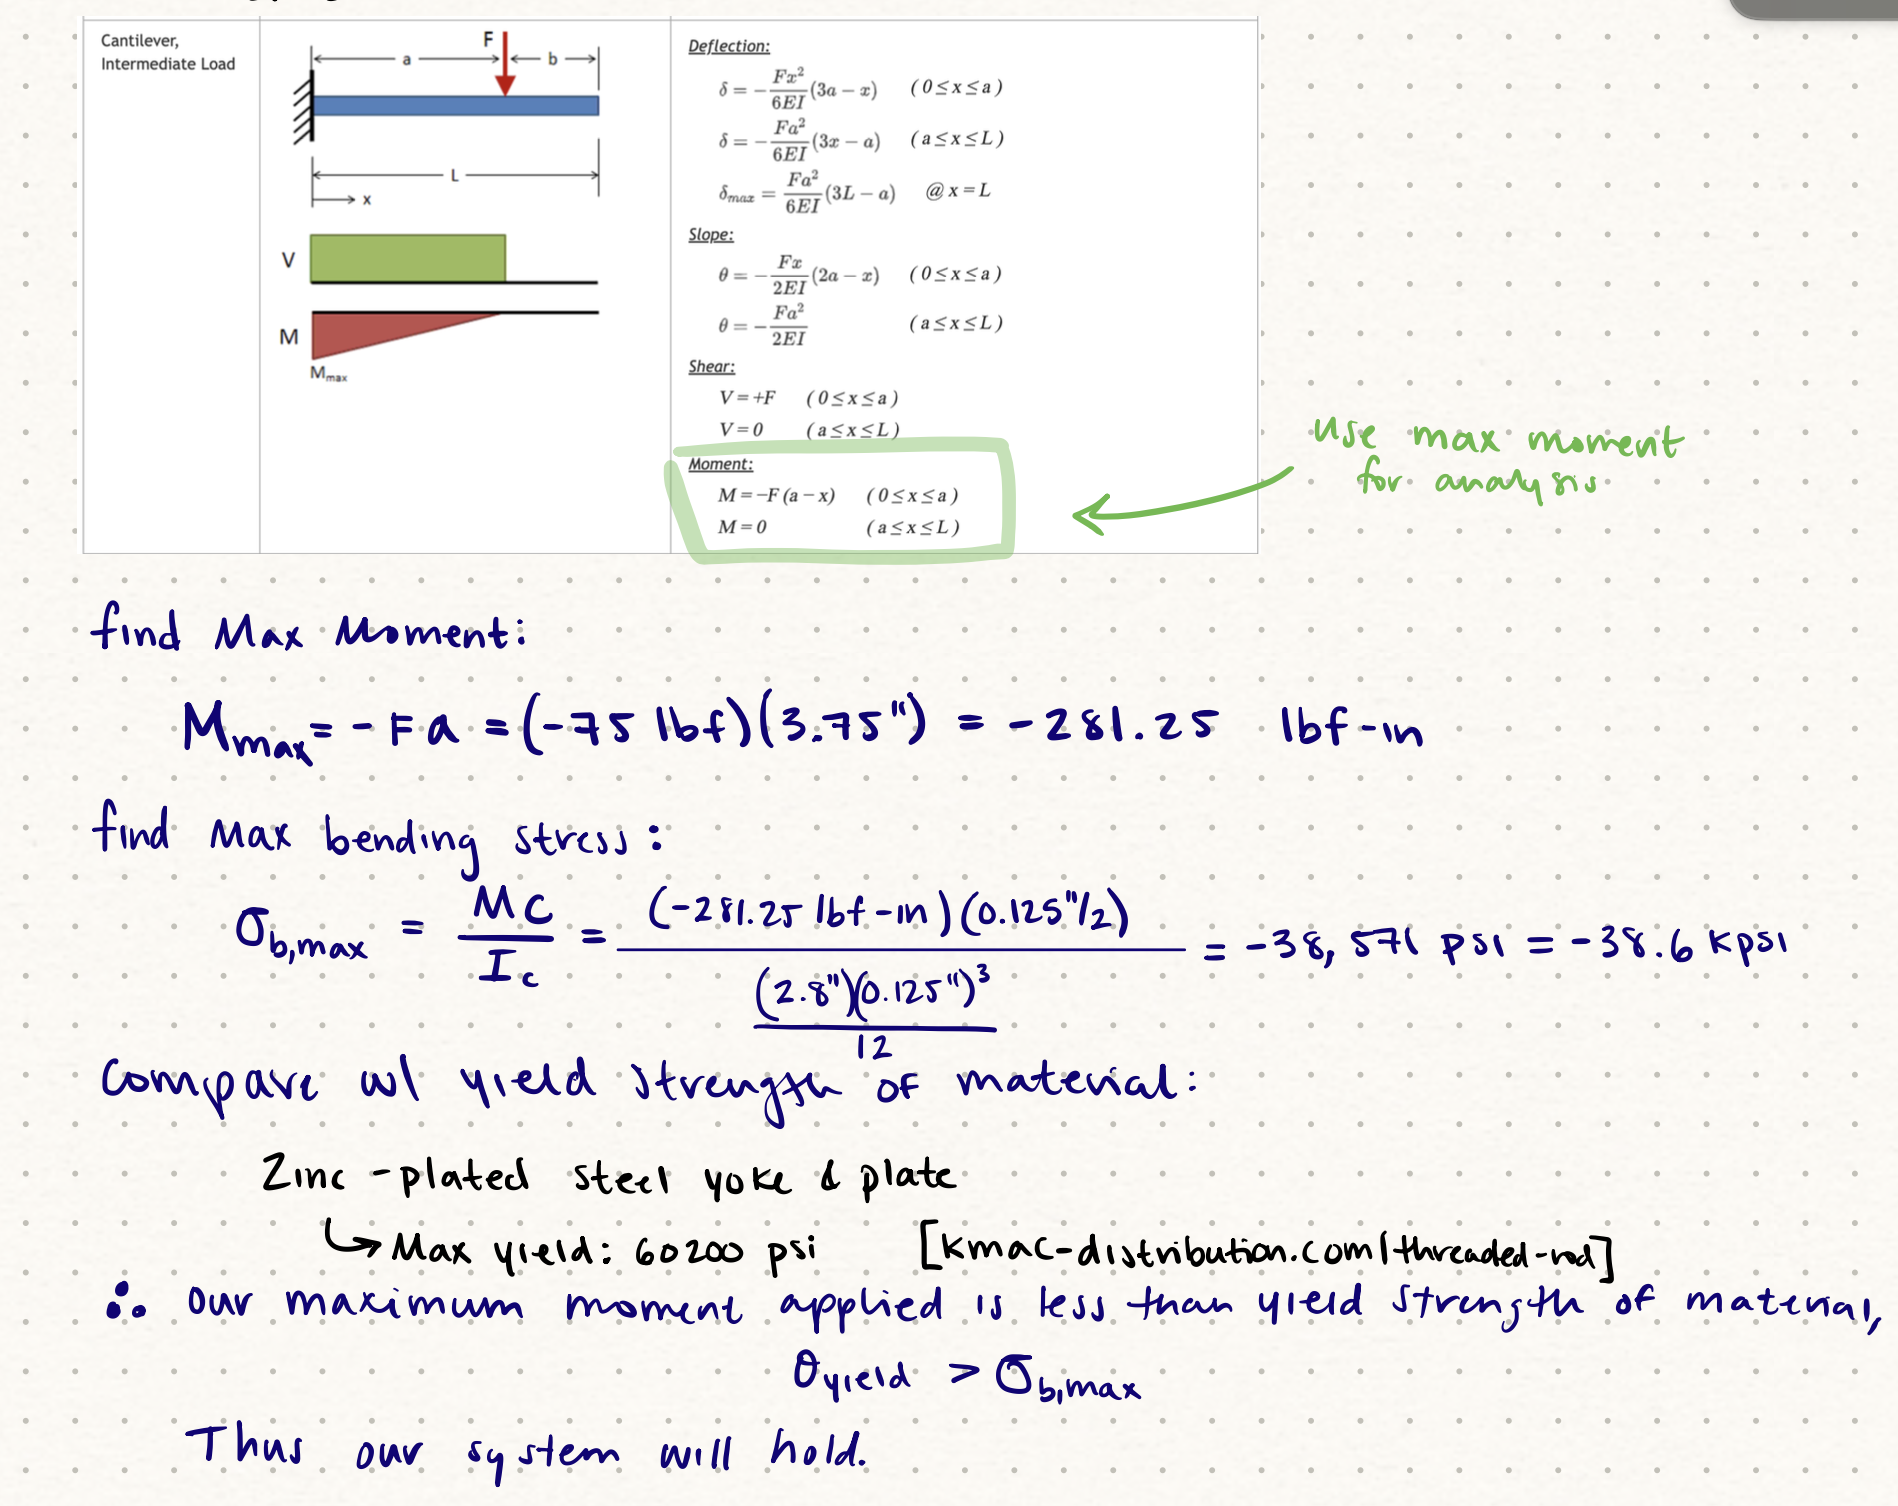 Cantilever,
Intermediate Load
F
a
b
L
x
V
M
Mmax
Deflection:
δ = −Fx²/6EI (3a − x) (0≤x≤a)
δ = −Fa²/6EI (3x − a) (a≤x≤L)
δmax = Fa²/6EI (3L − a) @ x=L
Slope:
θ = −Fx/2EI (2a − x) (0≤x≤a)
θ = −Fa²/2EI (a≤x≤L)
Shear:
V=+F (0≤x≤a)
V=0 (a≤x≤L)
Moment:
M=−F(a−x) (0≤x≤a)
M=0 (a≤x≤L)
use max moment
for analysis
find Max Moment:
Mmax = -Fa = (-75 lbf)(3.75") = -281.25 lbf-in
find Max bending stress:
σb,max = MC/Ic = (-281.25 lbf-in)(0.125"/2) / ((2.8")(0.125")³/12) = -38,571 psi = -38.6 kpsi
compare w/ yield strength of material:
Zinc-plated steel yoke & plate
↳ Max yield: 60200 psi [kmac-distribution.com/threaded-rod]
∴ our maximum moment applied is less than yield strength of material,
σyield > σb,max
Thus our system will hold.